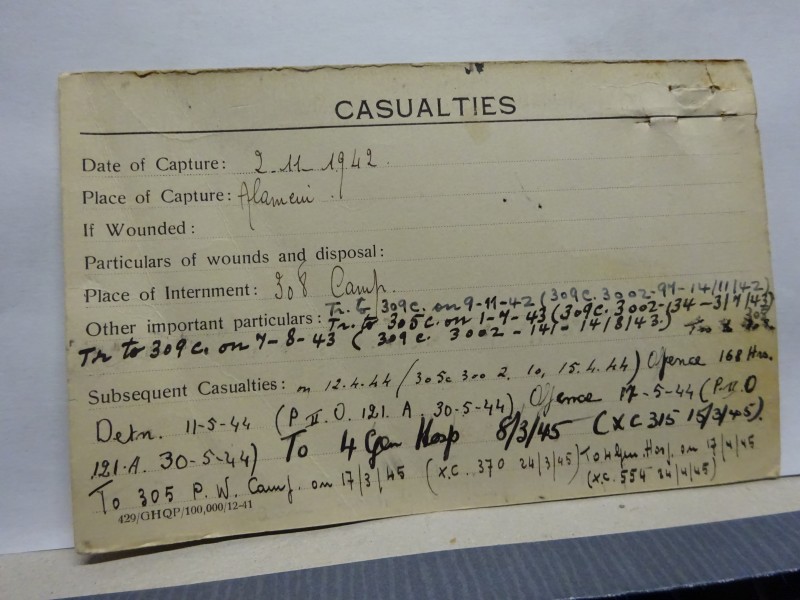 CASUALTIES
Date of Capture: 2-11-1942.
Place of Capture: Alamein.
If Wounded:
Particulars of wounds and disposal:
Place of Internment: 308 Camp.
Tr. to 309c. on 9-11-42 (309c. 3002-97-14/11/42)
Other important particulars: Tr. to 305c. on 1-7-43 (309c. 3002-134-3/7/43)
Tr to 309c. on 7-8-43 (309c. 3002-141-14/8/43.) 305
Subsequent Casualties: on 12.4.44 (305c 3002. 10, 15.4.44) Offence 168 Hrs.
Detn. 11-5-44 (P II. O. 121. A. 30-5-44) Offence 17-5-44 (P. II. O
121.A. 30-5-44) To 4 Gen Hosp 8/3/45 (XC 315 15/3/45).
To 305 P.W. Camp. on 17/3/45 (X.C. 370 24/3/45) To 4 Gen. Hosp. on 17/4/45
(X.C. 554 24/4/45)
429/GHQP/100,000/12-41